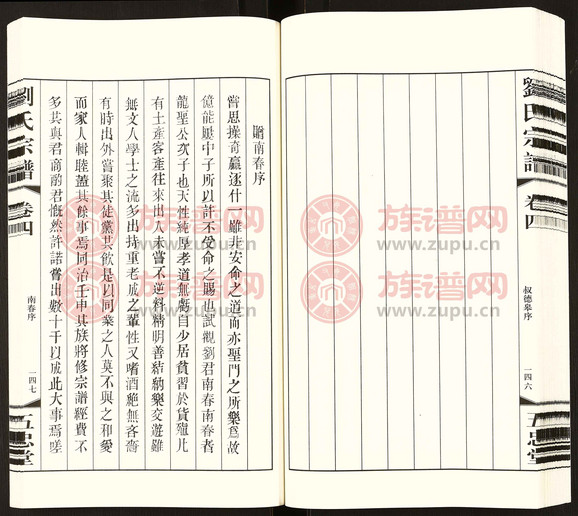 劉氏宗譜
卷四
叔德皋序
一四六
五忠堂
贈南春序
嘗思操奇贏逐什一雖非安命之道而亦聖門之所樂爲故
億能屢中子所以許不受命之賜也試觀劉君南春南春者
龍聖公次子也天性純厚孝道無虧自少居貧習於貨殖凡
有土產客產往來出入未嘗不逆料精明善結納樂交遊雖
無文人學士之流多出持重老成之輩性又嗜酒絕無客嗇
有時出外嘗聚其徒黨共飲是以同業之人莫不與之和愛
而家人輯睦蓋其餘事焉同治壬申其族將修宗譜經費不
多其與君商酌君慨然許諾嘗出數十千以成此大事焉嗟
劉氏宗譜
卷四
南春序
一四七
五忠堂
族谱网
www.zupu.cn
族谱网
www.zupu.cn
族谱网
www.zupu.cn
族谱网
www.zupu.cn